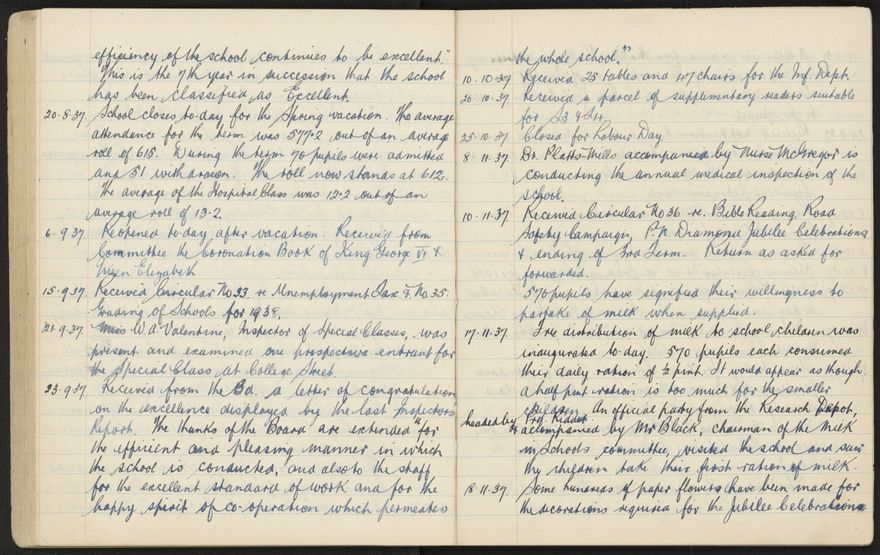 efficiency of the school continues to be excellent."
This is the 7th year in succession that the school
has been classified as Excellent.
20·8·37. School closes to-day for the Spring vacation. The average
attendance for the term was 577·2 out of an average
roll of 615. During the term 70 pupils were admitted
and 51 withdrawn. The roll now stands at 612.
The average of the Hospital Class was 12·2 out of an
average roll of 13·2.
6·9·37 Reopened to-day after vacation. Received from
Committee the Coronation Book of King George VI &
Queen Elizabeth.
15·9·37. Received Circular No 33 re Unemployment Tax & No 35
Grading of Schools for 1938.
21·9·37. Miss W A Valentine, Inspector of Special Classes, was
present and examined one prospective entrant for
the Special Class at College Street.
23·9·37 Received from the Bd. a letter of congratulation
on the excellence displayed by the last Inspectors
Report. "The thanks of the Board are extended "for
the efficient and pleasing manner in which
the school is conducted, and also to the staff
for the excellent standard of work and for the
happy spirit of co-operation which permeates
the whole school."
10·10·37 Received 25 tables and 47 chairs for the Inf. Dept.
20·10·37 Received a parcel of supplementary readers suitable
for S3 & Srs.
25·10·37 Closed for Labour Day
8·11·37. Dr. Platts-Mills accompanied by Nurse McGregor is
conducting the annual medical inspection of the
school.
10·11·37 Received Circular No 36 re. Bible Reading, Road
Safety Campaign, P.N. Diamond Jubilee Celebrations
& ending of 3rd Term. Return as asked for
forwarded.
570 pupils have signified their willingness to
partake of milk when supplied.
17·11·37. Free distribution of milk to school children was
inaugurated to-day. 570 pupils each consumed
their daily ration of ½ pint. It would appear as though
a half pint ration is too much for the smaller
children. An official party from the Research Depot,
headed by Prof. Riddet
& accompanied by Mr Black, chairman of the Milk
in Schools committee, visited the school and saw
the children take their first ration of milk.
18·11·37. Some hundreds of paper flowers have been made for
the decorations required for the Jubilee Celebrations